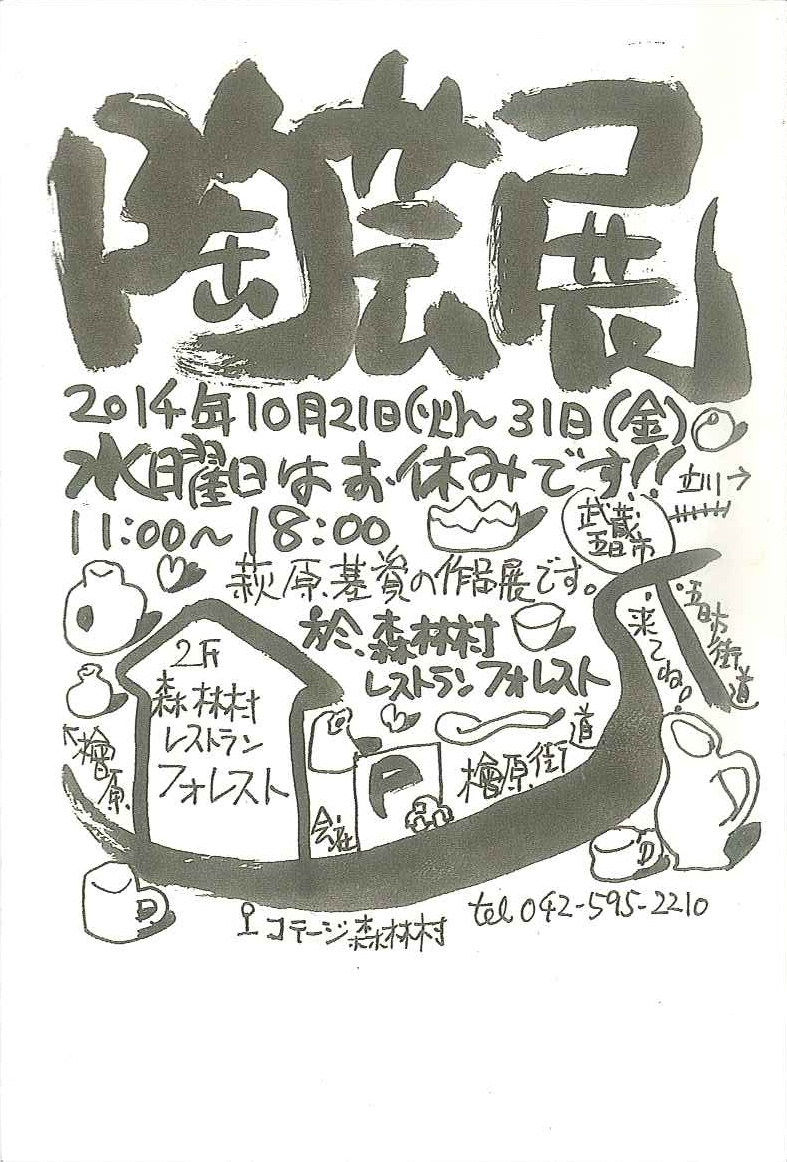 陶芸展
2014年10月21日(火)〜31日(金)
水曜日はお休みです!!
11:00〜18:00
立川→
武蔵
五日市
萩原基資の作品展です。
於、森林村
レストランフォレスト
五日市街道
来てね!
2F
森林村
レストラン
フォレスト
↖檜原
会社
P
檜原街道
コテージ森林村
tel 042-595-2210